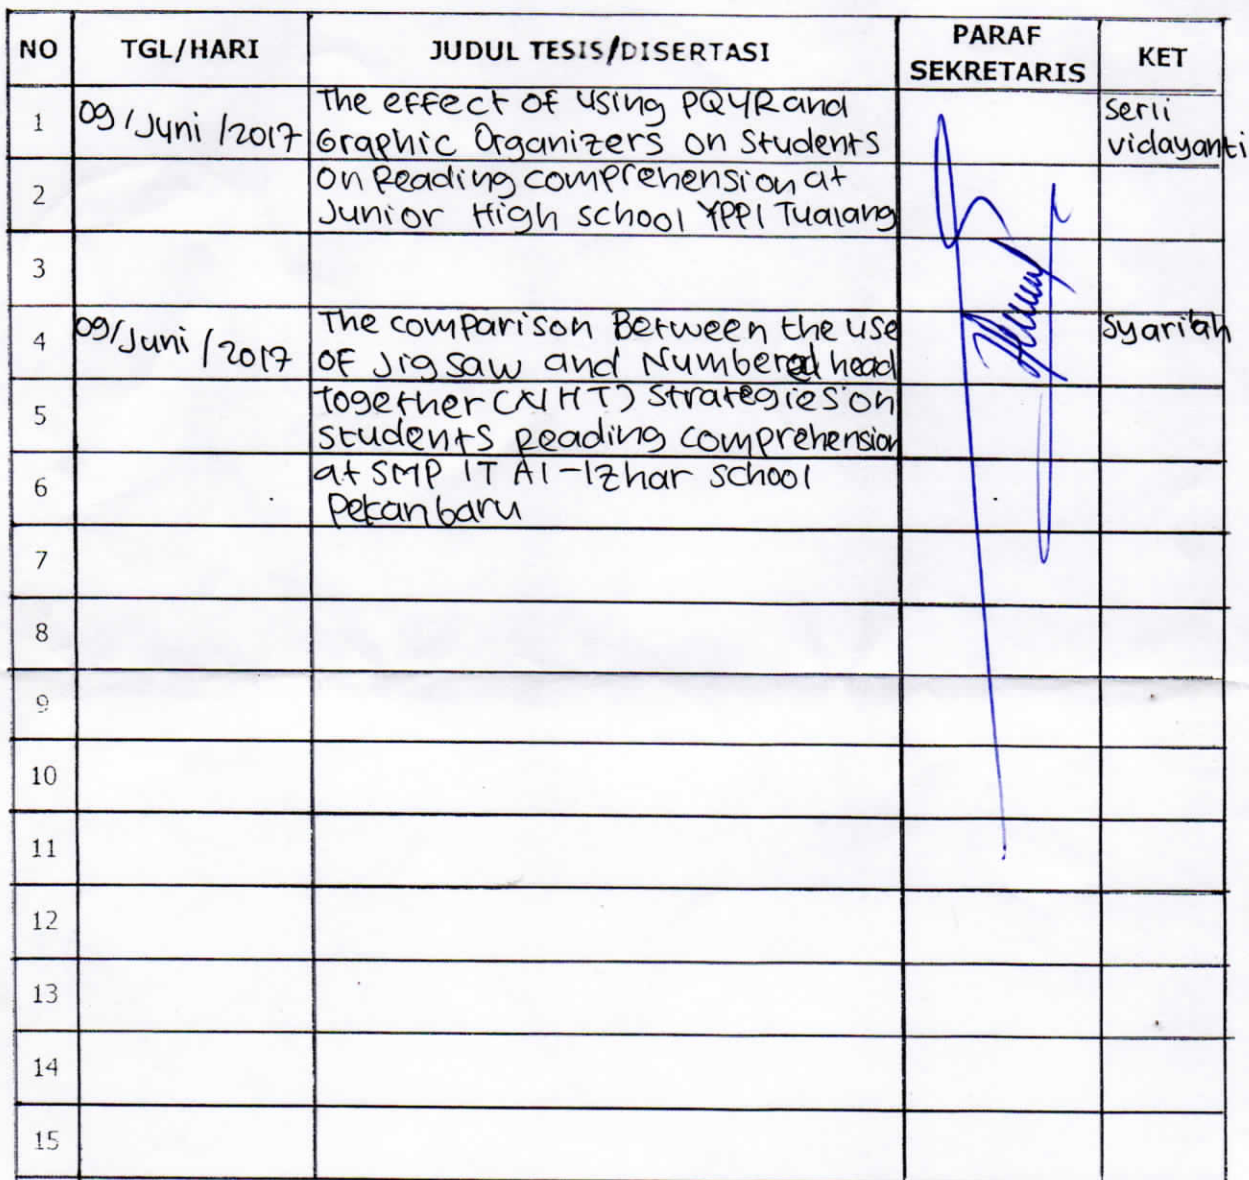 NO TGL/HARI JUDUL TESIS/DISERTASI PARAF SEKRETARIS KET
1 09/Juni/2017 The effect of using PQ4R and serii
Graphic Organizers on Students vidayanti
2 on Reading comprehension at
Junior High school YPPI Tualang
3
4 09/Juni/2017 The comparison Between the use Syari'ah
OF Jigsaw and Numbered head
5 together (NHT) Strategies on
students Reading comprehension
6 at SMP IT Al-Izhar school
Pekanbaru
7
8
9
10
11
12
13
14
15